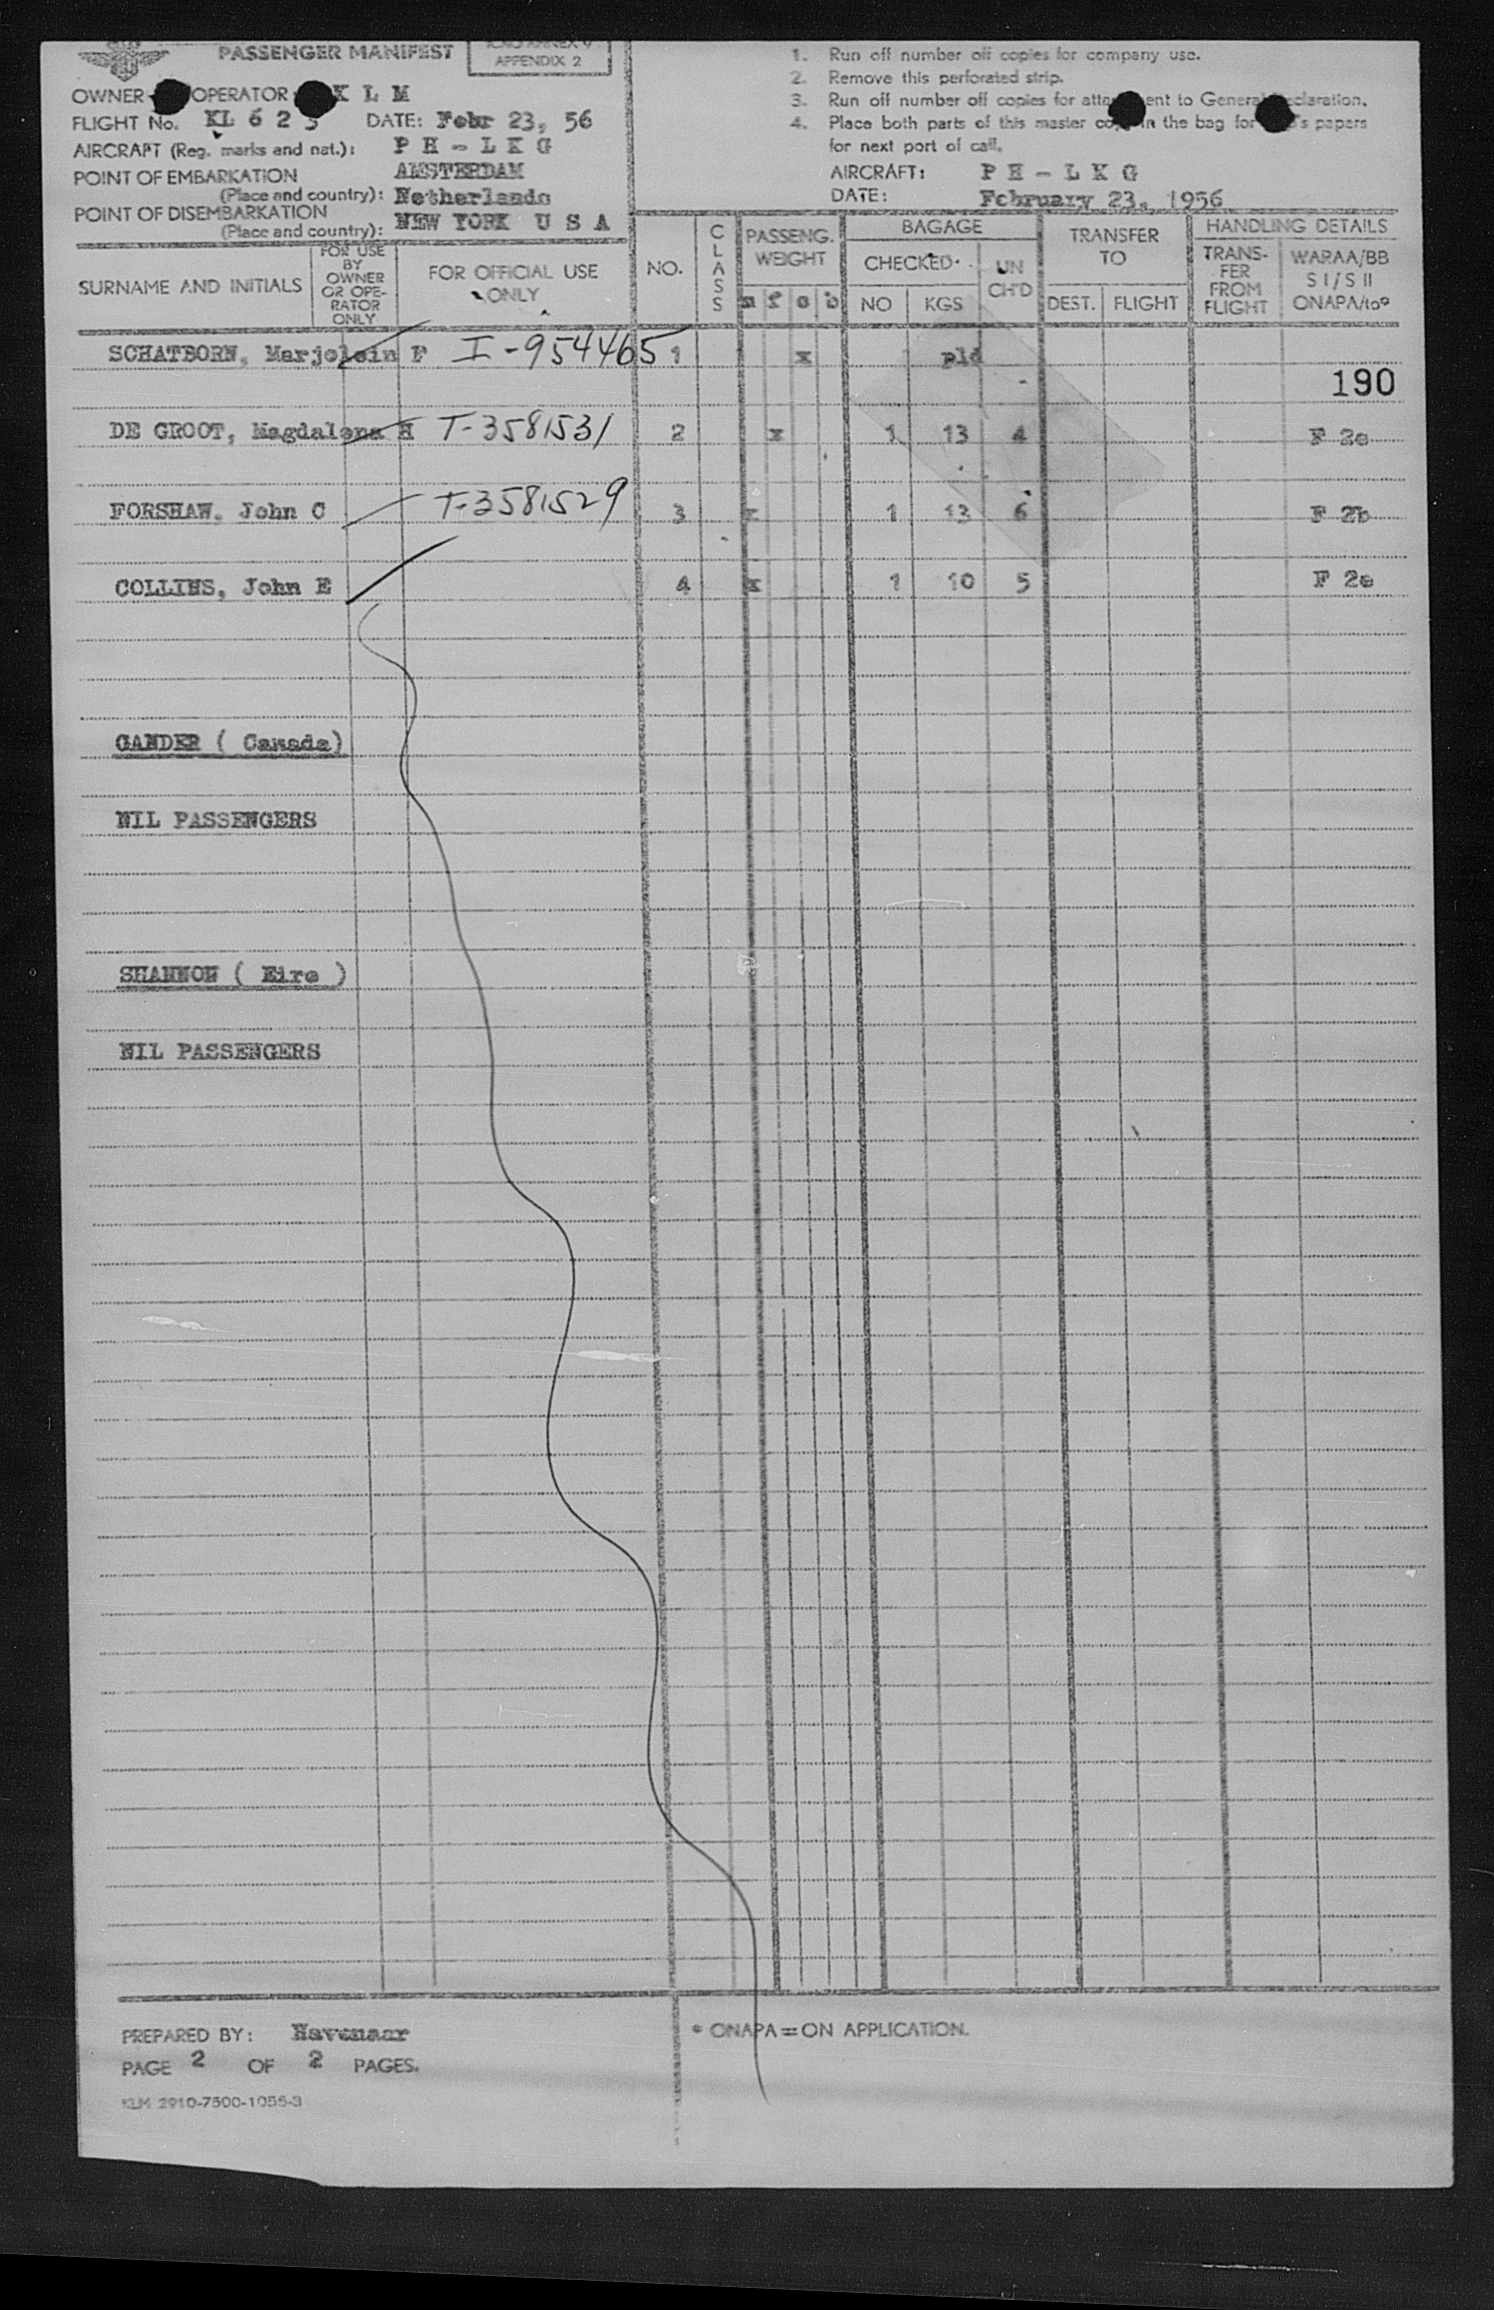 PASSENGER MANIFEST
ICAO ANNEX 9
APPENDIX 2
OWNER OPERATOR: K L M
FLIGHT No. KL 6 2 3 DATE: Febr 23, 56
AIRCRAFT (Reg. marks and nat.): P H - L K G
POINT OF EMBARKATION AMSTERDAM
(Place and country): Netherlands
POINT OF DISEMBARKATION
(Place and country): NEW YORK U S A
1. Run off number off copies for company use.
2. Remove this perforated strip.
3. Run off number off copies for attachment to General Declaration.
4. Place both parts of this master copy in the bag for 's papers
for next port of call.
AIRCRAFT: P H - L K G
DATE: February 23, 1956
SURNAME AND INITIALS
FOR USE
BY
OWNER
OR OPE-
RATOR
ONLY
FOR OFFICIAL USE
ONLY
NO.
CLASS
PASSENG.
WEIGHT
m f c b
BAGAGE
CHECKED
NO KGS
UN
CH'D
TRANSFER
TO
DEST. FLIGHT
HANDLING DETAILS
TRANS-
FER
FROM
FLIGHT
WAPAA/BB
S I / S II
ONAPA/too
SCHATBORN, Marjolein F I-954465 1 x pld
190
DE GROOT, Magdalena H T-3581531 2 x 1 13 4 F 2c
FORSHAW, John C T-3581529 3 x 1 13 6 F 2b
COLLINS, John E 4 x 1 10 5 F 2e
GANDER ( Canada)
NIL PASSENGERS
SHANNON ( Eire )
NIL PASSENGERS
PREPARED BY: Havenaar
* ONAPA = ON APPLICATION.
PAGE 2 OF 2 PAGES.
KLM 2910-7500-1055-3